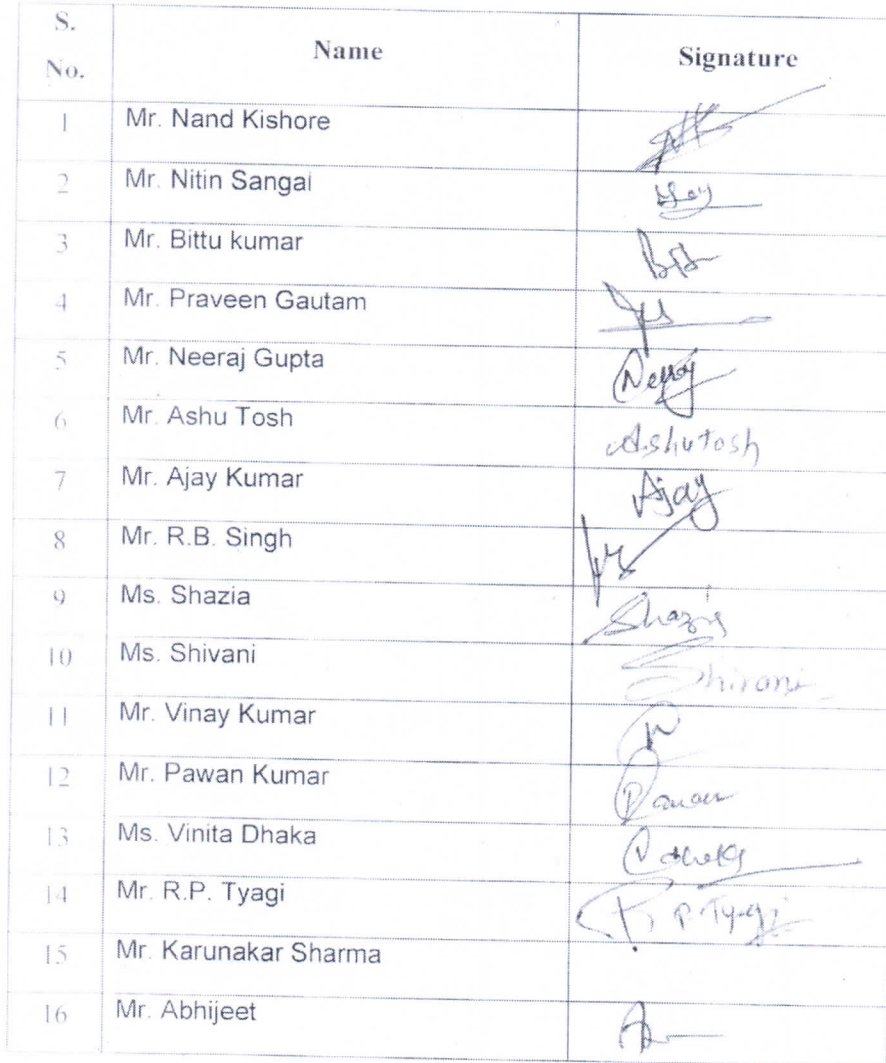 S. No. Name Signature
1 Mr. Nand Kishore
2 Mr. Nitin Sangal
3 Mr. Bittu kumar
4 Mr. Praveen Gautam
5 Mr. Neeraj Gupta Neeraj
6 Mr. Ashu Tosh Ashutosh
7 Mr. Ajay Kumar Ajay
8 Mr. R.B. Singh
9 Ms. Shazia Shazia
10 Ms. Shivani Shivani
11 Mr. Vinay Kumar
12 Mr. Pawan Kumar Pawan
13 Ms. Vinita Dhaka
14 Mr. R.P. Tyagi R P. Tyagi
15 Mr. Karunakar Sharma
16 Mr. Abhijeet